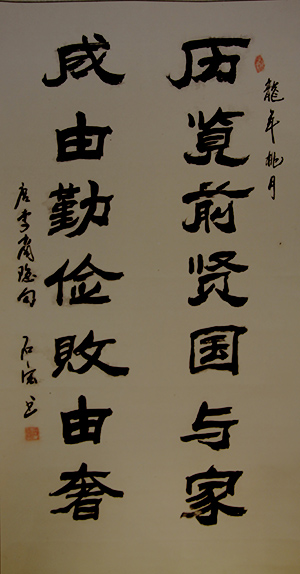 龍年桃月
历览前贤国与家
成由勤俭败由奢
唐李商隐句